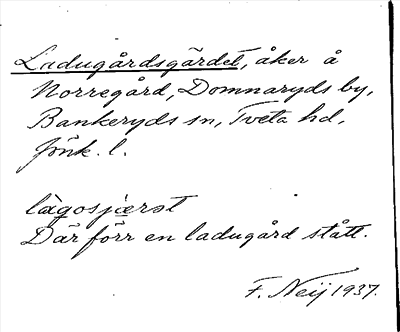 Ladugårdsgärdet, åker å
Norregård, Domnaryds by,
Bankeryds sn, Tveta hd,
Jönk. l.
làgosjærət
Där förr en ladugård stått.
F. Neij 1937.